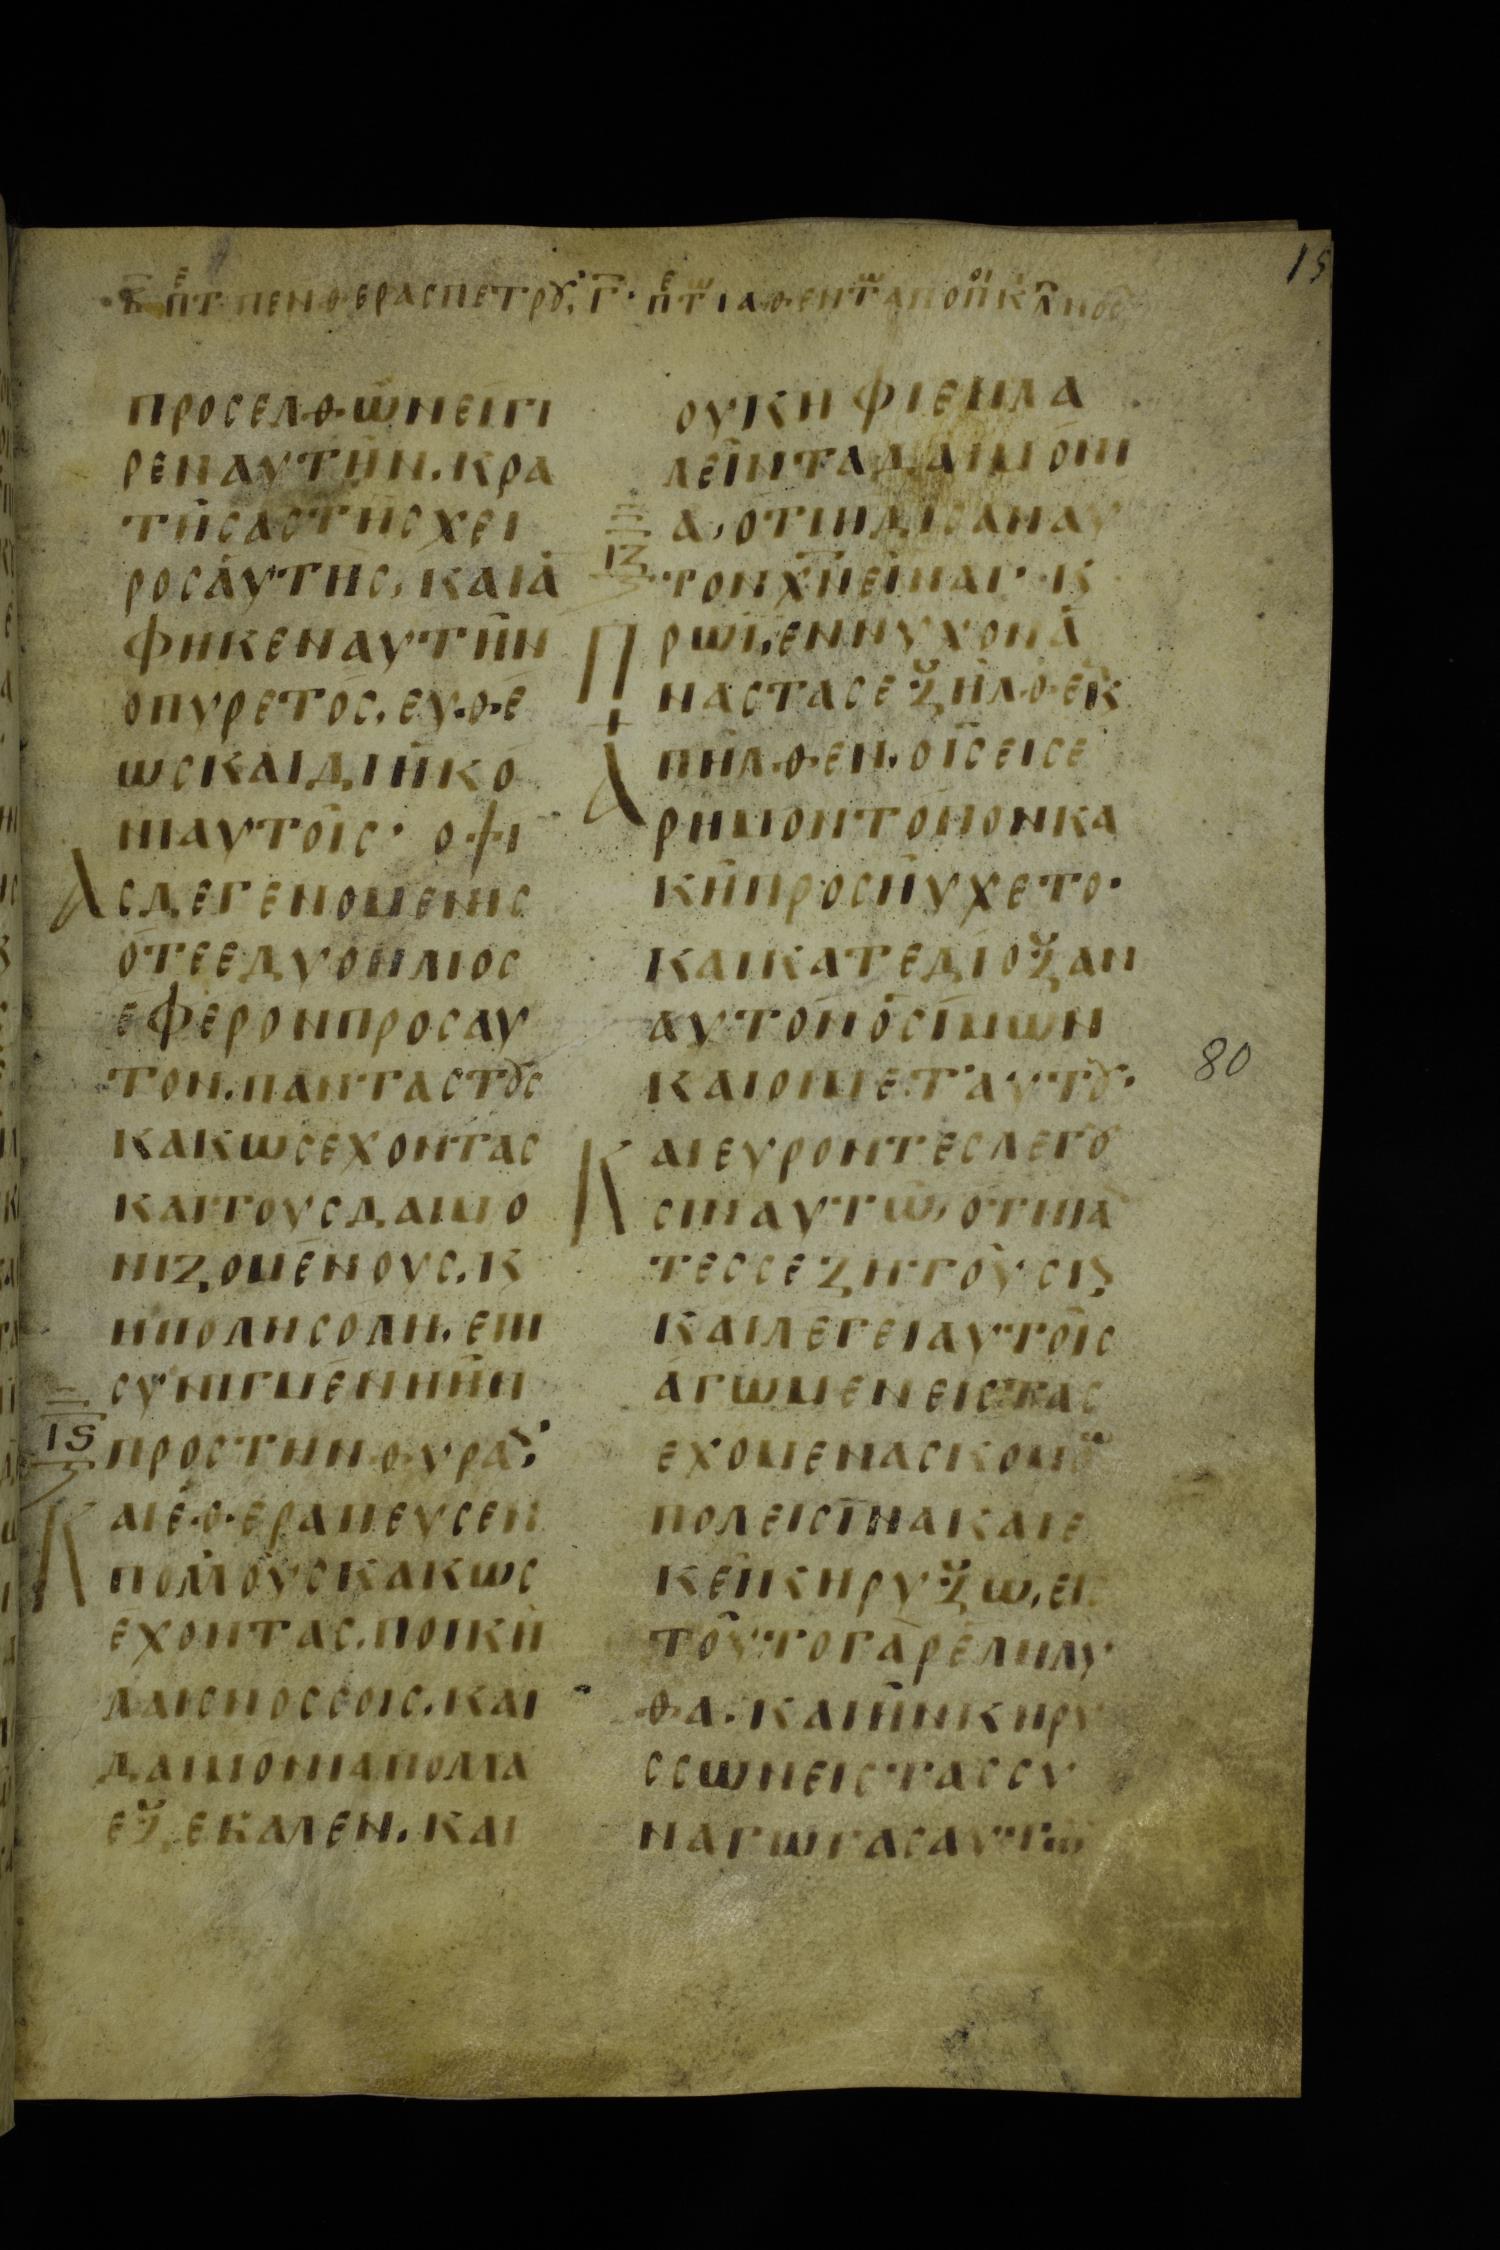 15
Β̅ πε̅τ πενθερας πετρȣ· Γ̅· πε̅τ ιαθεντ απο ποικλ νος
προσελθὼν εἴγι
ρεν αυτὴν. κρα
τήσας τῆς χει
ρος ἀυτῆς, και ἀ
φηκεν αυτὴν
ο πυρετός. ευθέ
ως και διηκό
νι αυτοῖς· οψι
Α
ς δε γενομενις
ότε εδυ ο ηλιος
έφερον προς αυ
τον. παντας τȣς
κακως εχοντας
και τους δαιμο
νιζομένους. κ
η πολης όλη. επι
συνιγμένη ἦν
Ις
προς την θυρα̅·
Κ
αι εθεραπευσεν
πολλοὺς κακως
εχοντας. ποικη
λαις νοσσοις. και
δαιμονια πολλα
εξεβαλεν. και
ουκ ηφιεν λα
λεῖν τα δαιμόνι
α, ότι ηδισαν αυ
ΙΖ
τον χ̅ν̅ εἶναι· κ
Π
ρωῒ, εννυχον ἀ
ναστας εξῆλθε κ
+
πῆλθεν. ο ι̅ς̅ εις ε
Α
ρημον τόπον κα
κῆ προσηύχετο·
και κατεδίοξαν
αυτον ὁ σίμων
και οι μετ αυτȣ·
Κ
αι ευροντες λεγȣ
σιν αυτῶ, ότι πά
τες σε ζητοῦσιν
και λέγει αυτοῖς
άγωμεν εις τας
εχομενας κομω
πολεις ἵνα και ε
κεῖ κηρυξω, εις
τοῦτο γὰρ ελιλυ
θα. και ῆν κηρυ
σσων εις τας συ
ναγωγας αυτω̅
80